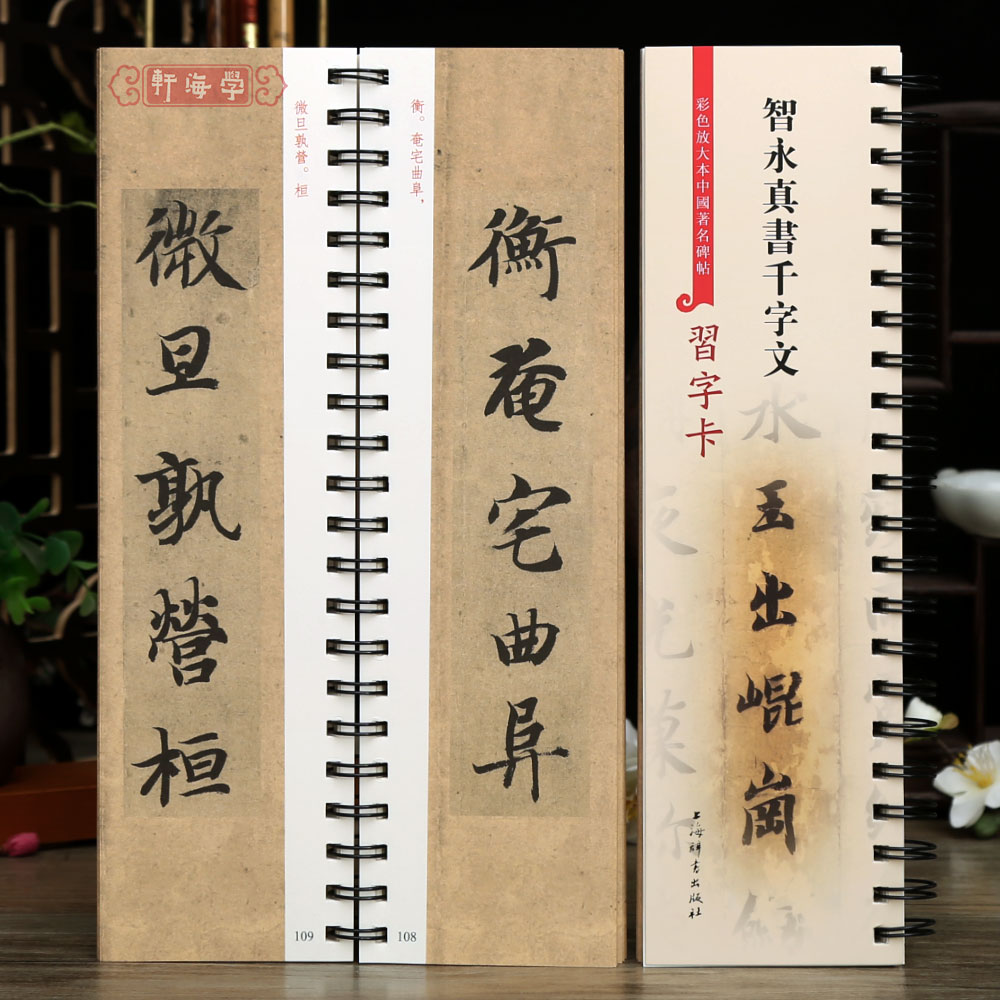 軒海學
微旦孰營。桓
微旦孰營桓
109
衡。奄宅曲阜，
衡奄宅曲阜
108
彩色放大本中國著名碑帖
智永真書千字文
習字卡
水
玉出崐崗
上海辭書出版社